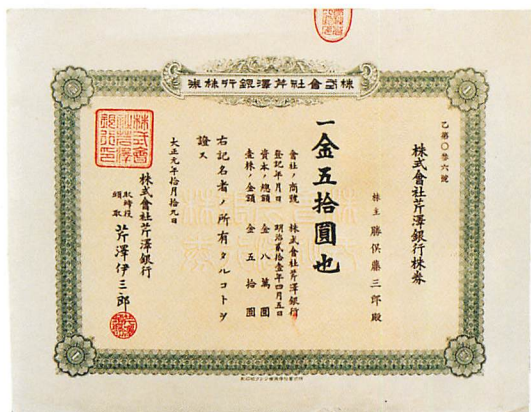 株式會社芹澤銀行株券
乙第〇參六號
株式會社芹澤銀行株券
株主 勝俣藤三郎殿
一金五拾圓也
會社ノ商號 株式會社芹澤銀行
登記年月日 明治貳拾壹年四月五日
資本ノ總額 金八萬圓
壹株ノ金額 金五拾圓
右記名者ノ所有タルコトヲ
證ス
大正元年拾月拾九日
株式會社芹澤銀行
取締役
頭取 芹澤伊三郎